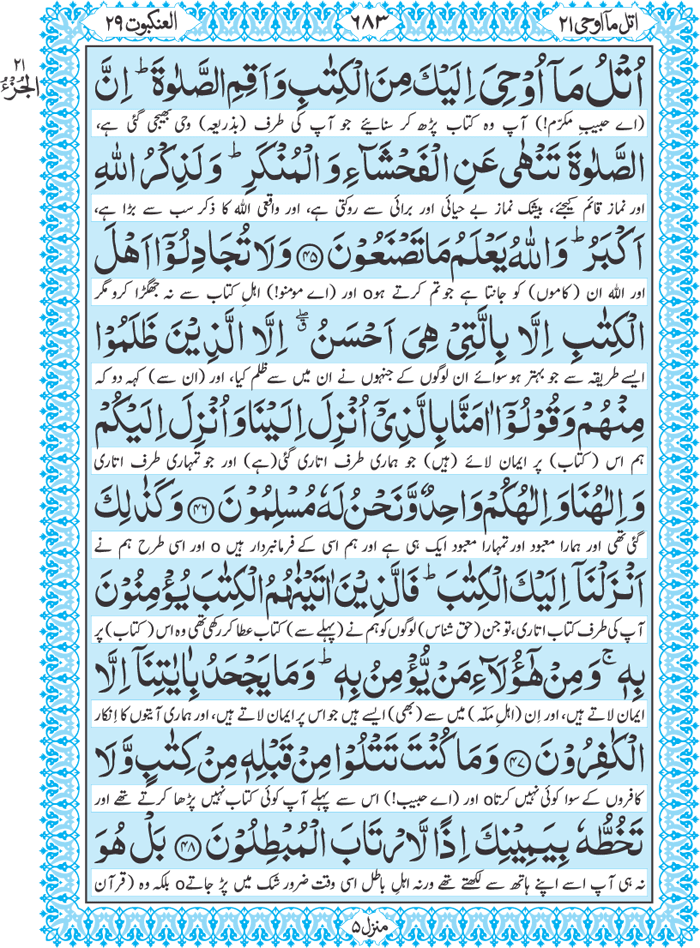 اتل ما اوحی ۲۱
۶۸۳
العنکبوت ۲۹
۲۱
الجزء
اُتْلُ مَاۤ اُوْحِیَ اِلَیْكَ مِنَ الْكِتٰبِ وَ اَقِمِ الصَّلٰوةَ ؕ اِنَّ
(اے حبیبِ مکرّم!) آپ وہ کتاب پڑھ کر سنائیے جو آپ کی طرف (بذریعہ) وحی بھیجی گئی ہے،
الصَّلٰوةَ تَنْهٰی عَنِ الْفَحْشَآءِ وَ الْمُنْكَرِ ؕ وَ لَذِكْرُ اللّٰهِ
اور نماز قائم کیجئے، بیشک نماز بے حیائی اور برائی سے روکتی ہے، اور واقعی اللہ کا ذکر سب سے بڑا ہے،
اَكْبَرُ ؕ وَ اللّٰهُ یَعْلَمُ مَا تَصْنَعُوْنَ ﴿۴۵﴾ وَ لَا تُجَادِلُوْۤا اَهْلَ
اور اللہ ان (کاموں) کو جانتا ہے جو تم کرتے ہو۝ اور (اے مومنو!) اہلِ کتاب سے نہ جھگڑا کرو مگر
الْكِتٰبِ اِلَّا بِالَّتِیْ هِیَ اَحْسَنُ ۖۗ اِلَّا الَّذِیْنَ ظَلَمُوْا
ایسے طریقہ سے جو بہتر ہو سوائے ان لوگوں کے جنہوں نے ان میں سے ظلم کیا، اور (ان سے) کہہ دو کہ
مِنْهُمْ وَ قُوْلُوْۤا اٰمَنَّا بِالَّذِیْۤ اُنْزِلَ اِلَیْنَا وَ اُنْزِلَ اِلَیْكُمْ
ہم اس (کتاب) پر ایمان لائے (ہیں) جو ہماری طرف اتاری گئی (ہے) اور جو تمہاری طرف اتاری
وَ اِلٰهُنَا وَ اِلٰهُكُمْ وَاحِدٌ وَّ نَحْنُ لَهٗ مُسْلِمُوْنَ ﴿۴۶﴾ وَ كَذٰلِكَ
گئی تھی اور ہمارا معبود اور تمہارا معبود ایک ہی ہے اور ہم اسی کے فرمانبردار ہیں۝ اور اسی طرح ہم نے
اَنْزَلْنَاۤ اِلَیْكَ الْكِتٰبَ ؕ فَالَّذِیْنَ اٰتَیْنٰهُمُ الْكِتٰبَ یُؤْمِنُوْنَ
آپ کی طرف کتاب اتاری، تو جن (حق شناس) لوگوں کو ہم نے (پہلے سے) کتاب عطا کر رکھی تھی وہ اس (کتاب) پر
بِهٖ ۚ وَ مِنْ هٰۤؤُلَآءِ مَنْ یُّؤْمِنُ بِهٖ ؕ وَ مَا یَجْحَدُ بِاٰیٰتِنَاۤ اِلَّا
ایمان لاتے ہیں، اور اِن (اہلِ مکّہ) میں سے (بھی) ایسے ہیں جو اس پر ایمان لاتے ہیں، اور ہماری آیتوں کا اِنکار
الْكٰفِرُوْنَ ﴿۴۷﴾ وَ مَا كُنْتَ تَتْلُوْا مِنْ قَبْلِهٖ مِنْ كِتٰبٍ وَّ لَا
کافروں کے سوا کوئی نہیں کرتا۝ اور (اے حبیب!) اس سے پہلے آپ کوئی کتاب نہیں پڑھا کرتے تھے اور
تَخُطُّهٗ بِیَمِیْنِكَ اِذًا لَّارْتَابَ الْمُبْطِلُوْنَ ﴿۴۸﴾ بَلْ هُوَ
نہ ہی آپ اسے اپنے ہاتھ سے لکھتے تھے ورنہ اہلِ باطل اسی وقت ضرور شک میں پڑ جاتے۝ بلکہ وہ (قرآن
منزل ۵